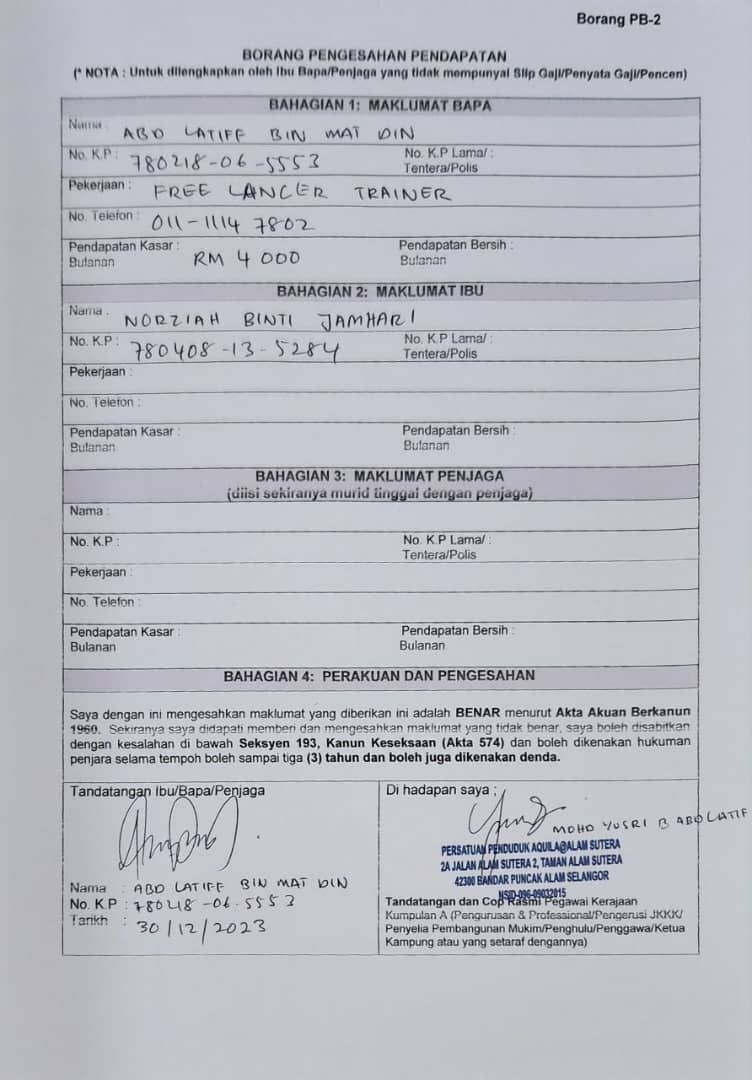 Borang PB-2
BORANG PENGESAHAN PENDAPATAN
(* NOTA : Untuk dilengkapkan oleh Ibu Bapa/Penjaga yang tidak mempunyai Slip Gaji/Penyata Gaji/Pencen)
BAHAGIAN 1: MAKLUMAT BAPA
Nama : ABD LATIFF BIN MAT DIN
No. K.P : 780218-06-5553 No. K.P Lama/ :
Tentera/Polis
Pekerjaan : FREE LANCER TRAINER
No. Telefon : 011-1114 7802
Pendapatan Kasar : RM 4 000 Pendapatan Bersih :
Bulanan Bulanan
BAHAGIAN 2: MAKLUMAT IBU
Nama : NORZIAH BINTI JAMHARI
No. K.P : 780408-13-5284 No. K.P Lama/ :
Tentera/Polis
Pekerjaan :
No. Telefon :
Pendapatan Kasar : Pendapatan Bersih :
Bulanan Bulanan
BAHAGIAN 3: MAKLUMAT PENJAGA
(diisi sekiranya murid tinggal dengan penjaga)
Nama :
No. K.P : No. K.P Lama/ :
Tentera/Polis
Pekerjaan :
No. Telefon :
Pendapatan Kasar : Pendapatan Bersih :
Bulanan Bulanan
BAHAGIAN 4: PERAKUAN DAN PENGESAHAN
Saya dengan ini mengesahkan maklumat yang diberikan ini adalah BENAR menurut Akta Akuan Berkanun
1960. Sekiranya saya didapati memberi dan mengesahkan maklumat yang tidak benar, saya boleh disabitkan
dengan kesalahan di bawah Seksyen 193, Kanun Keseksaan (Akta 574) dan boleh dikenakan hukuman
penjara selama tempoh boleh sampai tiga (3) tahun dan boleh juga dikenakan denda.
Tandatangan Ibu/Bapa/Penjaga
Nama : ABD LATIFF BIN MAT DIN
No. K.P : 780218-06-5553
Tarikh : 30/12/2023
Di hadapan saya :
MOHD YUSRI B ABD LATIF
PERSATUAN PENDUDUK AQUILA@ALAM SUTERA
2A JALAN ALAM SUTERA 2, TAMAN ALAM SUTERA
42300 BANDAR PUNCAK ALAM SELANGOR
NSID-096-09032015
Tandatangan dan Cop Rasmi Pegawai Kerajaan
Kumpulan A (Pengurusan & Professional/Pengerusi JKKK/
Penyelia Pembangunan Mukim/Penghulu/Penggawa/Ketua
Kampung atau yang setaraf dengannya)